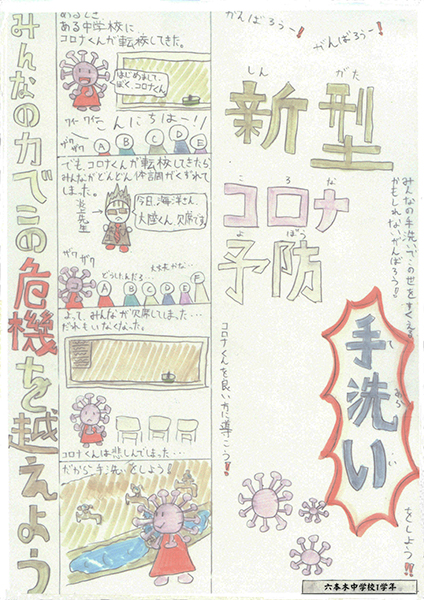 みんなの力でこの危機を越えよう
あるとき
ある中学校に、
コロナくんが転校してきた。
はじめまして、
ぼく、コロナくん
ワイ ワイ
こんにちはー!!
ザワ
ザワ
A B C D E
でも、コロナくんが転校してきたら
みんながどんどん体調がくずれて
しまった。
先生
今日、海洋さん、
大陸くん、欠席です。
ザワ
ザワ
どうしたんだろ…
大丈夫かな…
A B C D E
よって、みんなが欠席してしまった…
だれもいなくなった。
コロナくんは悲しんでしまった…
だから手洗いをしよう!
がんばろうー!
がんばろうー!
しん がた
新型
ころな
コロナ
よぼう
予防
みんなの手洗いで、この世をすくえる
かもしれない!がんばろう!
コロナくんを良い方に導こう!
て あら い
手洗い
をしよう!!
六本木中学校1学年